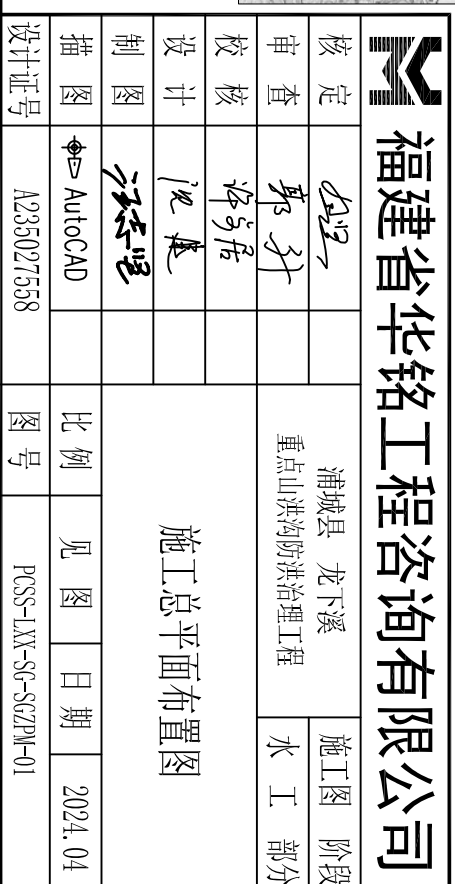 福建省华铭工程咨询有限公司
核定
浦城县 龙下溪
重点山洪沟防洪治理工程
施工图 阶段
审查
水工 部分
校核
施工总平面布置图
设计
制图
描图 AutoCAD 比例 见图 日期 2024.04
设计证号 A235027558 图号 PCSS-LXX-SG-SGZPM-01